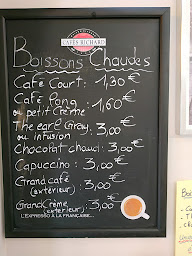 CAFÉS RICHARD
Boissons Chaudes
Café Court: 1,30€
Café Long
ou petit Crème : 1,60€
Thé earl Gray
ou infusion : 3,00€
Chocolat chaud: 3,00€
Capuccino: 3,00€
Grand café
(extérieur): 3,00€
Grand Crème
(exterieur): 3,00€
L'EXPRESSO À LA FRANÇAISE...